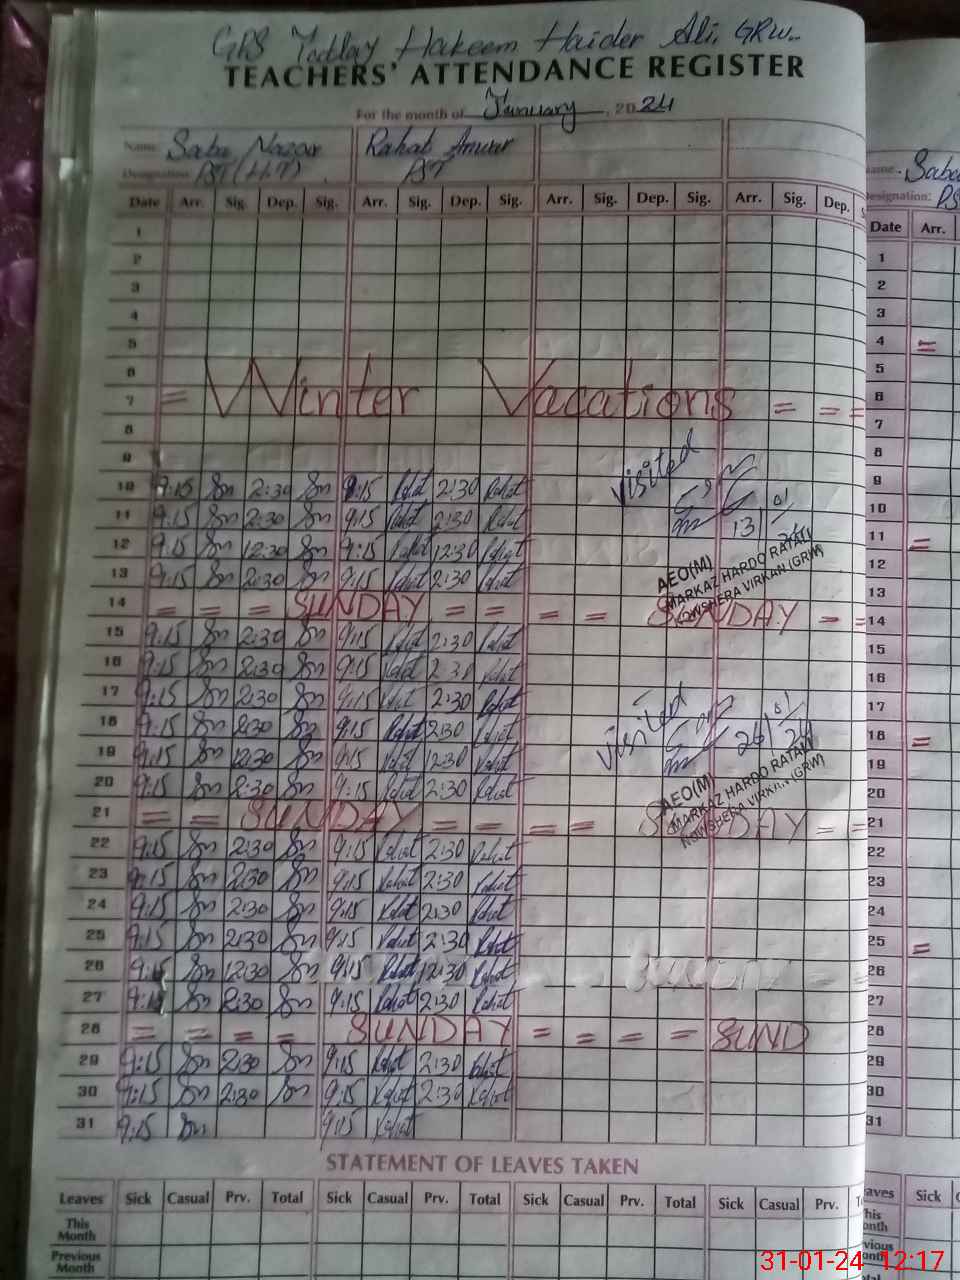 GPS Hakeem Haider Ali, GRW..
TEACHERS' ATTENDANCE REGISTER
For the month of January, 2024
Name: Saba Nazar Rahab Anwar
Designation: PST (H.T) PST
Date Arr. Sig. Dep. Sig. Arr. Sig. Dep. Sig. Arr. Sig. Dep. Sig. Arr. Sig. Dep.
1
2
3
4
5
6
7 = Winter Vacations = = =
8
9
10 9:15 Sn 2:30 Sn 9:15 Rahat 2:30 Rahat
11 9:15 Sn 2:30 Sn 9:15 Rahat 2:30 Rahat
12 9:15 Sn 12:30 Sn 9:15 Rahat 12:30 Rahat
13 9:15 Sn 2:30 Sn 9:15 Rahat 2:30 Rahat
visited
13/01/24
AEO(M)
MARKAZ HARDO RATAN
NOWSHERA VIRKAN (GRW)
14 = = = SUNDAY = = = = SUNDAY = =
15 9:15 Sn 2:30 Sn 9:15 Rahat 2:30 Rahat
16 9:15 Sn 2:30 Sn 9:15 Rahat 2:30 Rahat
17 9:15 Sn 2:30 Sn 9:15 Rahat 2:30 Rahat
18 9:15 Sn 2:30 Sn 9:15 Rahat 2:30 Rahat
19 9:15 Sn 12:30 Sn 9:15 Rahat 12:30 Rahat
20 9:15 Sn 2:30 Sn 9:15 Rahat 2:30 Rahat
visited
26/01/24
AEO(M)
MARKAZ HARDO RATAN
NOWSHERA VIRKAN (GRW)
21 = = SUNDAY = = = = SUNDAY = =
22 9:15 Sn 2:30 Sn 9:15 Rahat 2:30 Rahat
23 9:15 Sn 2:30 Sn 9:15 Rahat 2:30 Rahat
24 9:15 Sn 2:30 Sn 9:15 Rahat 2:30 Rahat
25 9:15 Sn 2:30 Sn 9:15 Rahat 2:30 Rahat
26 9:15 Sn 12:30 Sn 9:15 Rahat 12:30 Rahat
27 9:15 Sn 2:30 Sn 9:15 Rahat 2:30 Rahat
28 = = = = SUNDAY = = = = SUND
29 9:15 Sn 2:30 Sn 9:15 Rahat 2:30 Rahat
30 9:15 Sn 2:30 Sn 9:15 Rahat 2:30 Rahat
31 9:15 Sn 9:15 Rahat
STATEMENT OF LEAVES TAKEN
Leaves Sick Casual Prv. Total Sick Casual Prv. Total Sick Casual Prv. Total Sick Casual Prv.
This Month
Previous Month
Designation: PS
Date Arr.
1
2
3
4 =
5
6
7
8
9
10
11 =
12
13
14
15
16
17
18 =
19
20
21
22
23
24
25 =
26
27
28
29
30
31
Sick
31-01-24 12:17